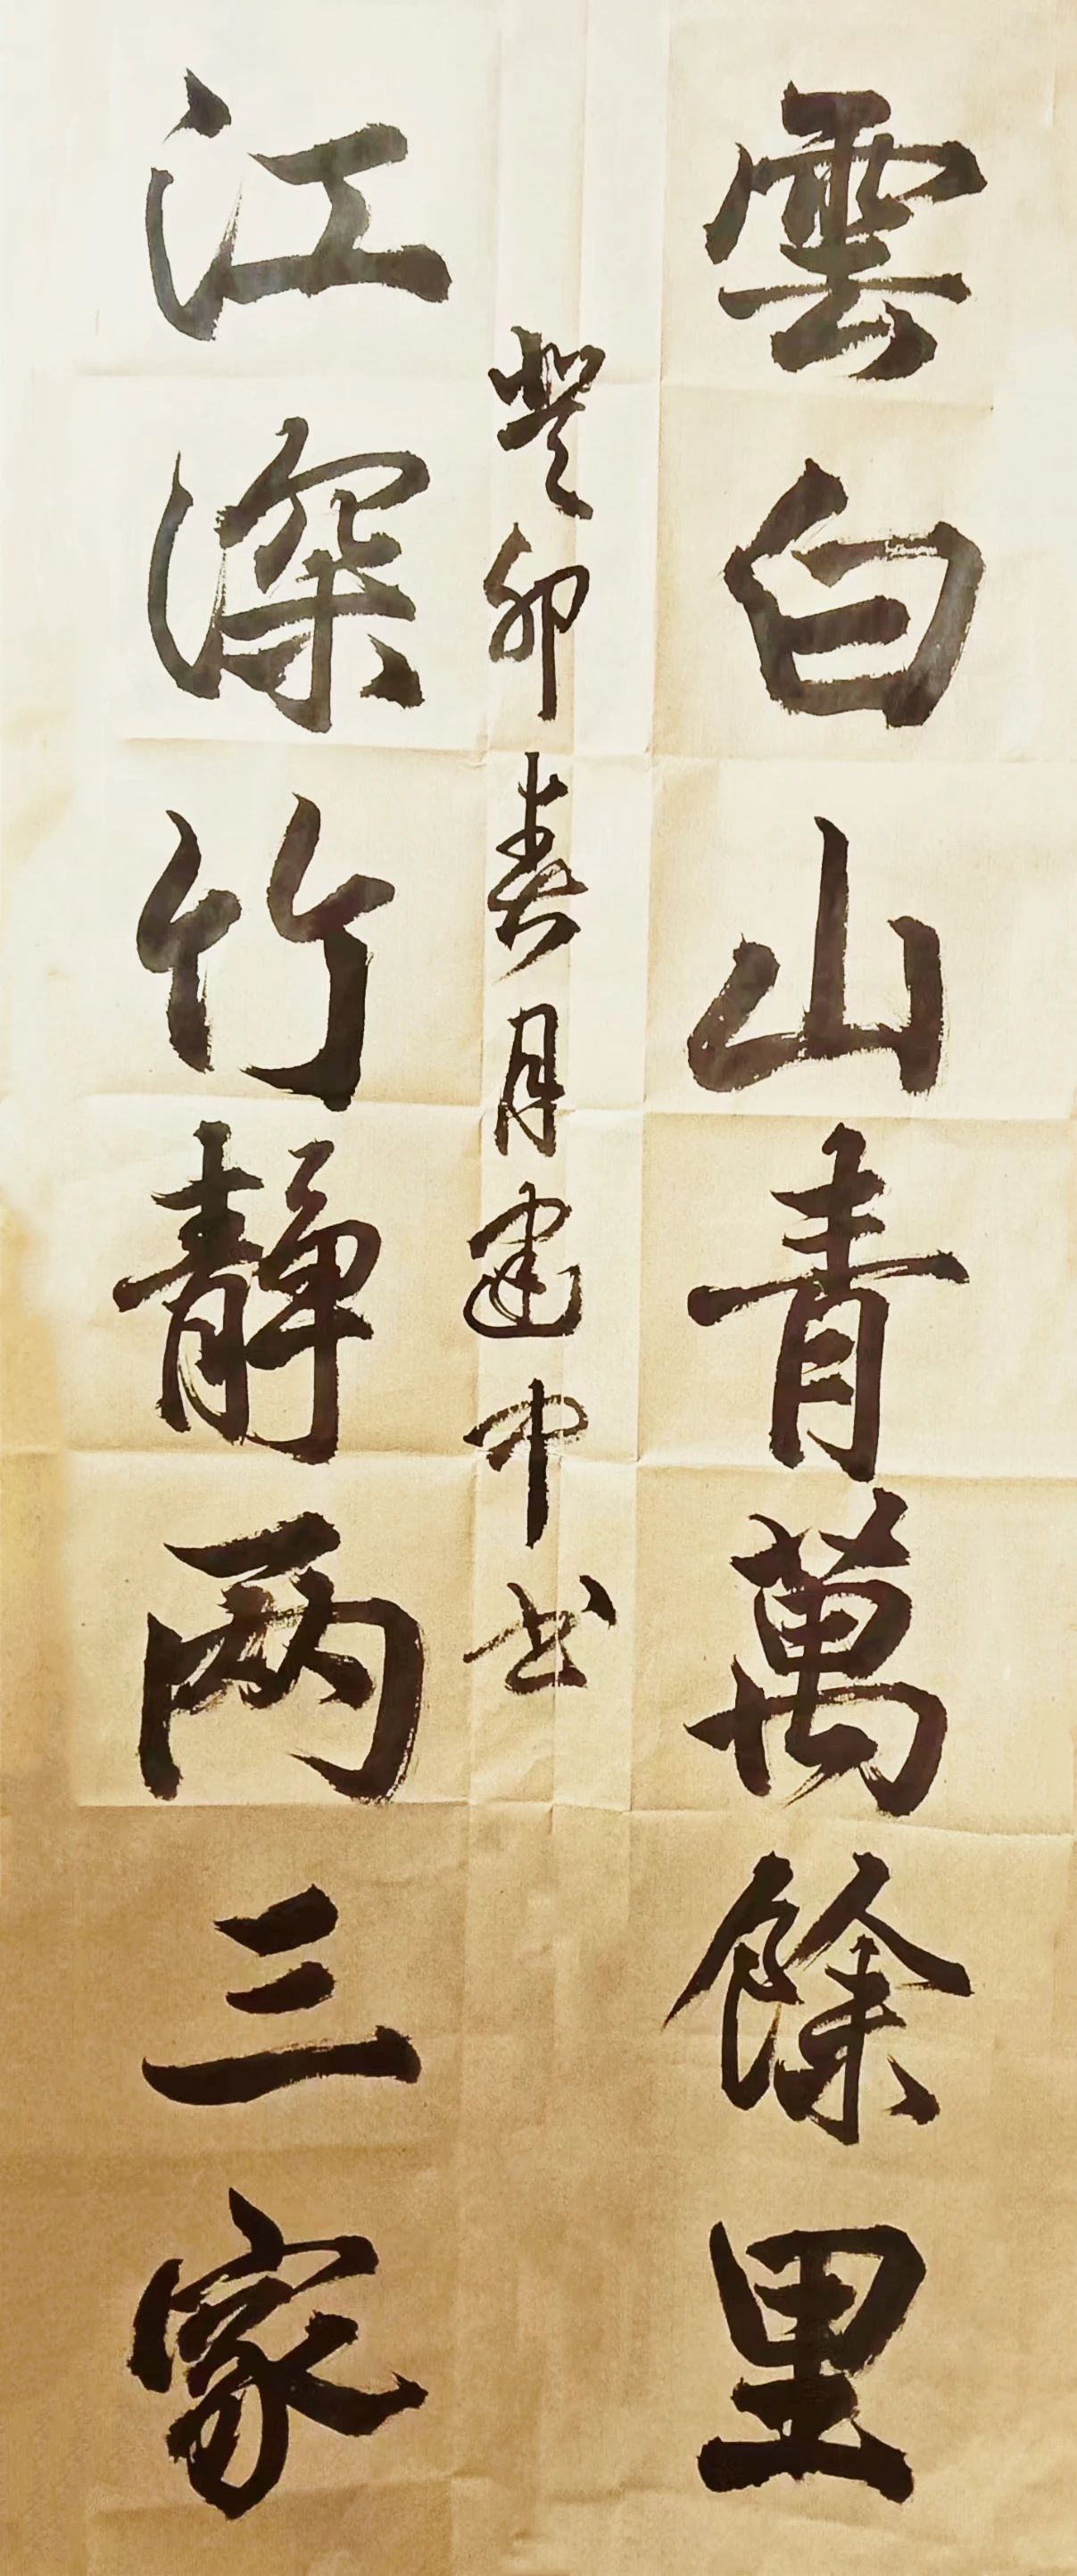 雲白山青萬餘里
江深竹靜两三家
癸卯春月建中书